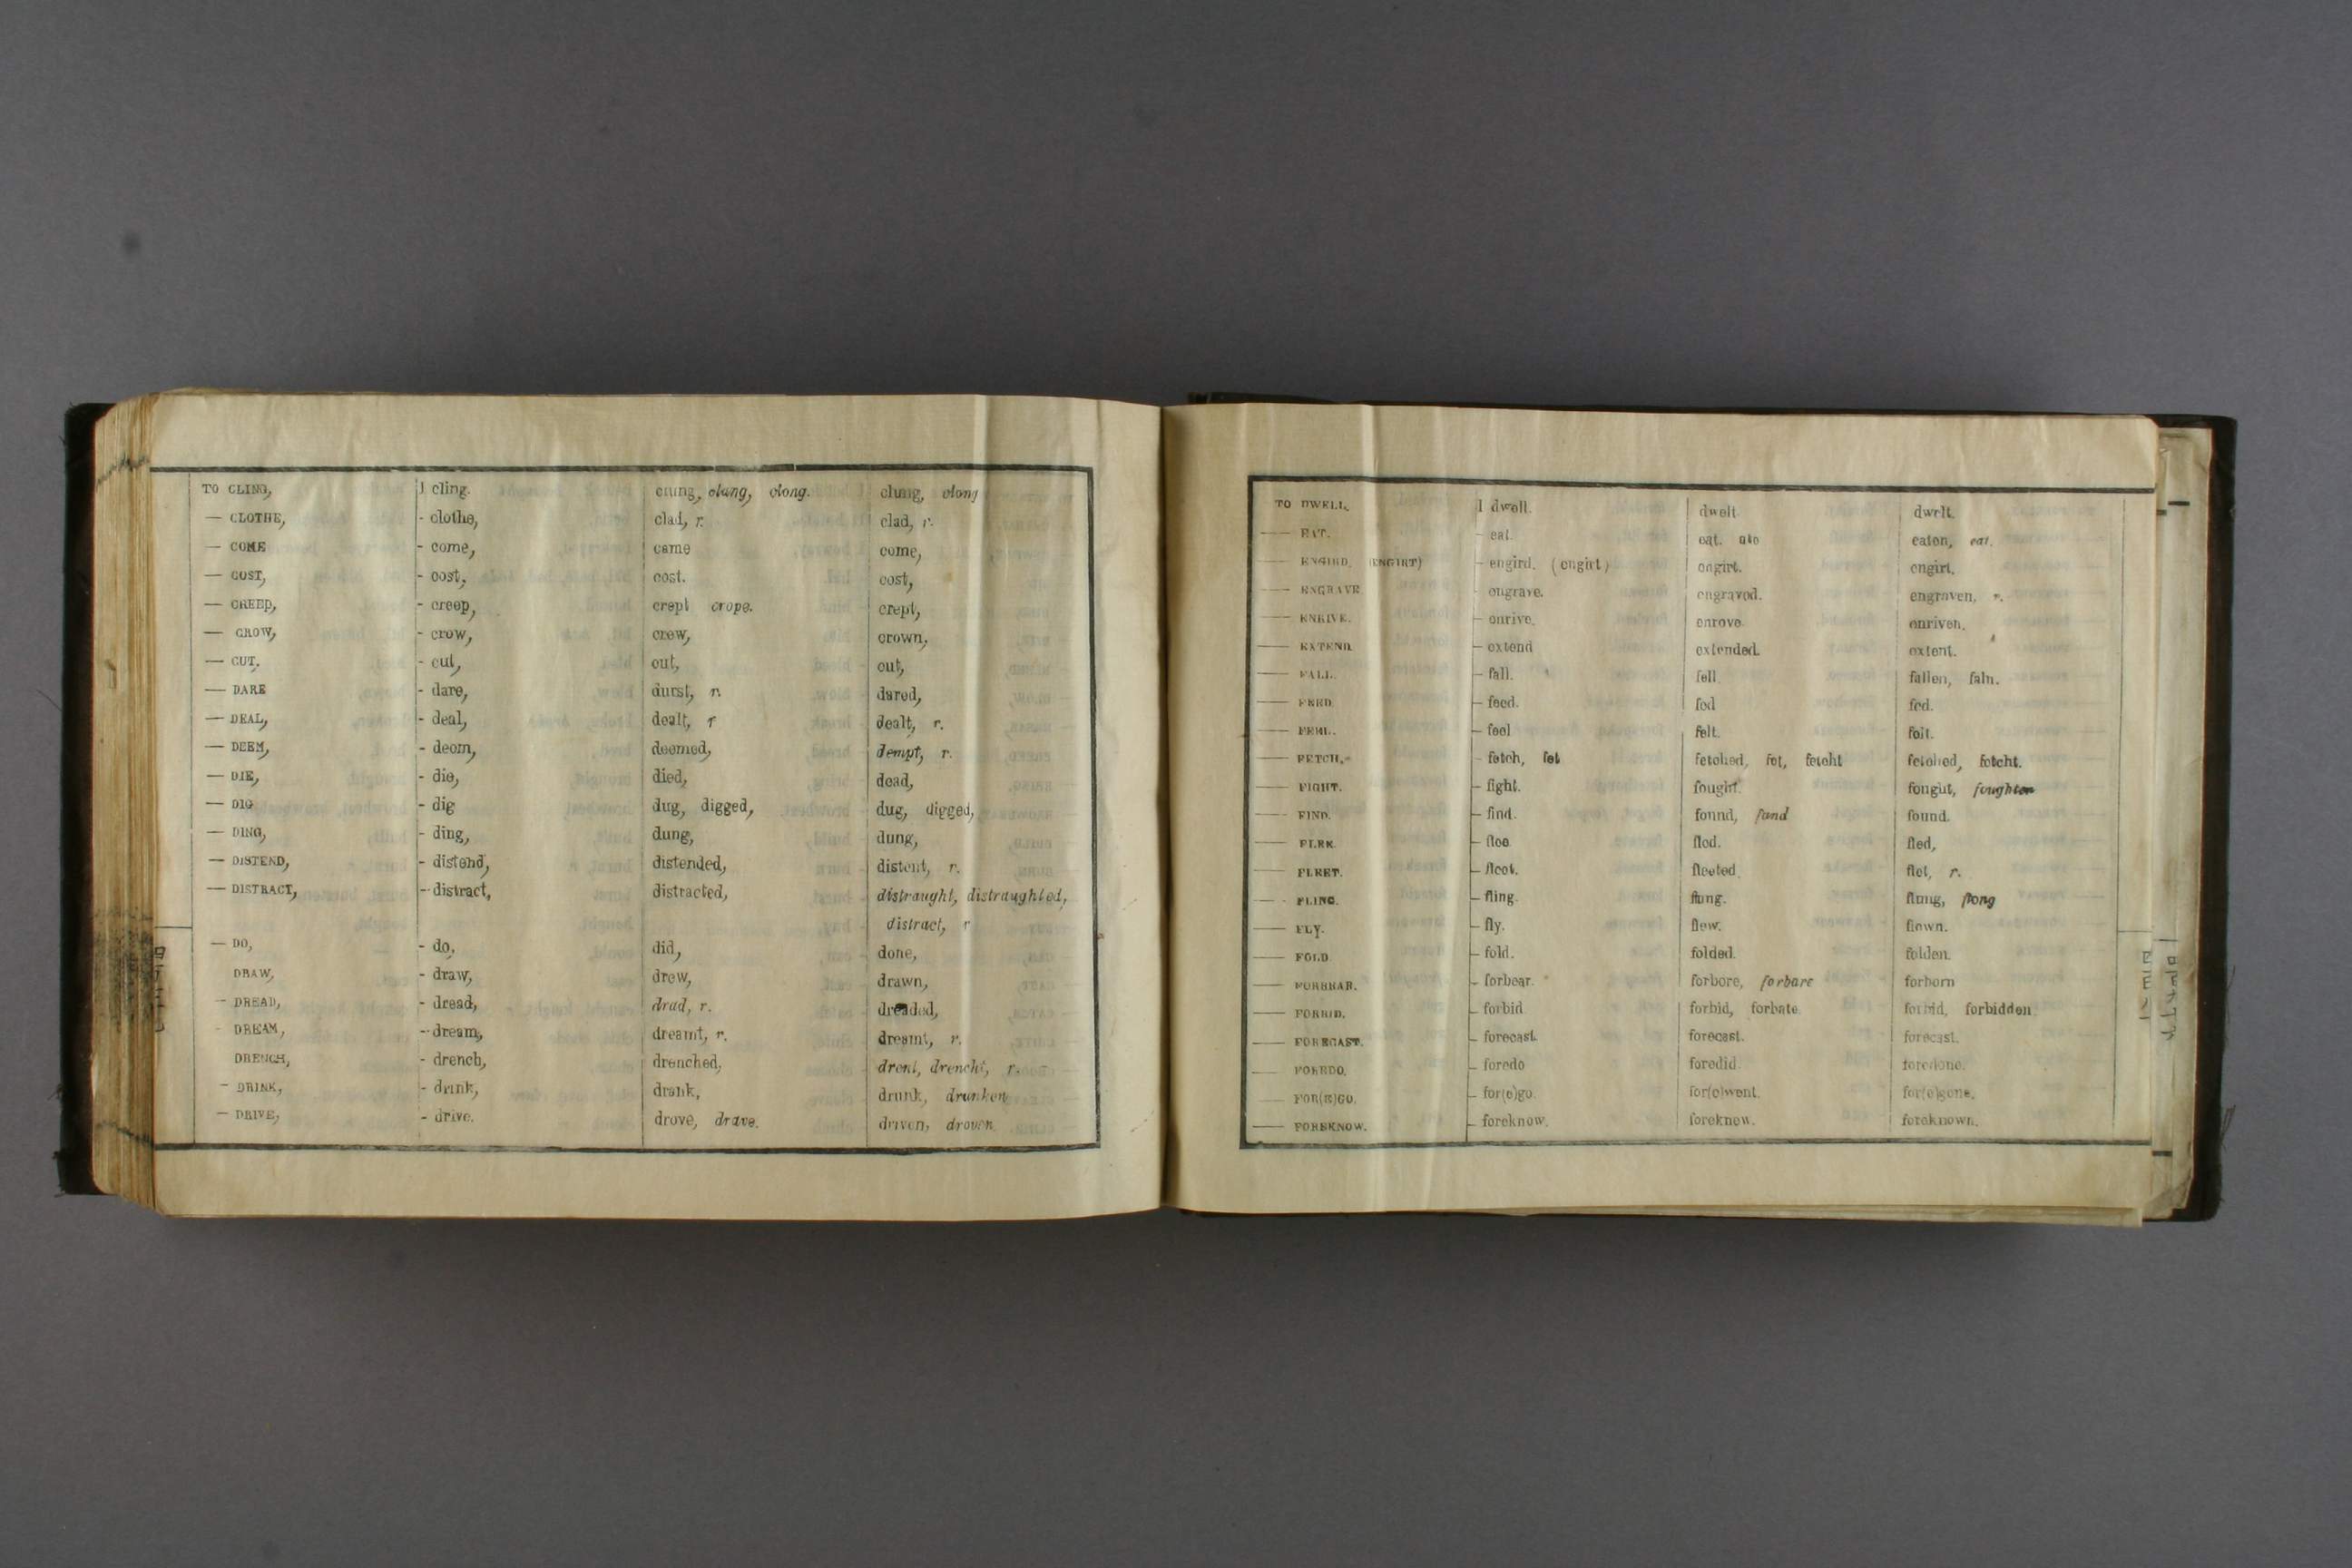 TO CLING, I cling. clung, clang, clong. clung, clong
— CLOTHE, - clothe, clad, r. clad, r.
— COME - come, came come,
— COST, - cost, cost. cost,
— CREEP, - creep, crept crope. crept,
— CROW, - crow, crew, crown,
— CUT, - cut, cut, cut,
— DARE - dare, durst, r. dared,
— DEAL, - deal, dealt, r dealt, r.
— DEEM, - deem, deemed, dempt, r.
— DIE, - die, died, dead,
— DIG - dig dug, digged, dug, digged,
— DING, - ding, dung, dung,
— DISTEND, - distend, distended, distent, r.
— DISTRACT, - distract, distracted, distraught, distraughted,
distract, r
— DO, - do, did, done,
DRAW, - draw, drew, drawn,
— DREAD, - dread, drad, r. dreaded,
- DREAM, - dream, dreamt, r. dreamt, r.
DRENCH, - drench, drenched, drent, drencht, r.
— DRINK, - drink, drank, drunk, drunken
— DRIVE, - drive. drove, drave. driven, droven.
TO DWELL. I dwell. dwelt dwelt.
— EAT. - eat. eat. ate eaten, eat.
— ENGIRD. (ENGIRT) - engird. (engirt) engirt. engirt.
— ENGRAVE - engrave. engraved. engraven, r.
— ENRIVE. - enrive. enrove enriven.
— EXTEND. - extend extended. extent.
— FALL. - fall. fell fallen, faln.
— FEED - feed. fed fed.
— FEEL. - feel felt. felt.
— FETCH. - fetch, fet fetched, fet, fetcht fetched, fotcht.
— FIGHT. - fight. fought. fought, foughten
— FIND. - find. found, fand found.
— FLEE. - flee fled. fled,
— FLEET. - fleet. fleeted. flet, r.
— FLING. - fling. flung. flung, flong
— FLY. - fly. flew. flown.
— FOLD - fold. folded. folden.
— FORBEAR. - forbear. forbore, forbare forborn
— FORBID. - forbid forbid, forbate forbid, forbidden
— FORECAST. - forecast. forecast. forecast.
— FOREDO. - foredo foredid. foredone.
— FOR(E)GO. - for(e)go. for(e)went. for(e)gone.
— FOREKNOW. - foreknow. foreknew. foreknown.